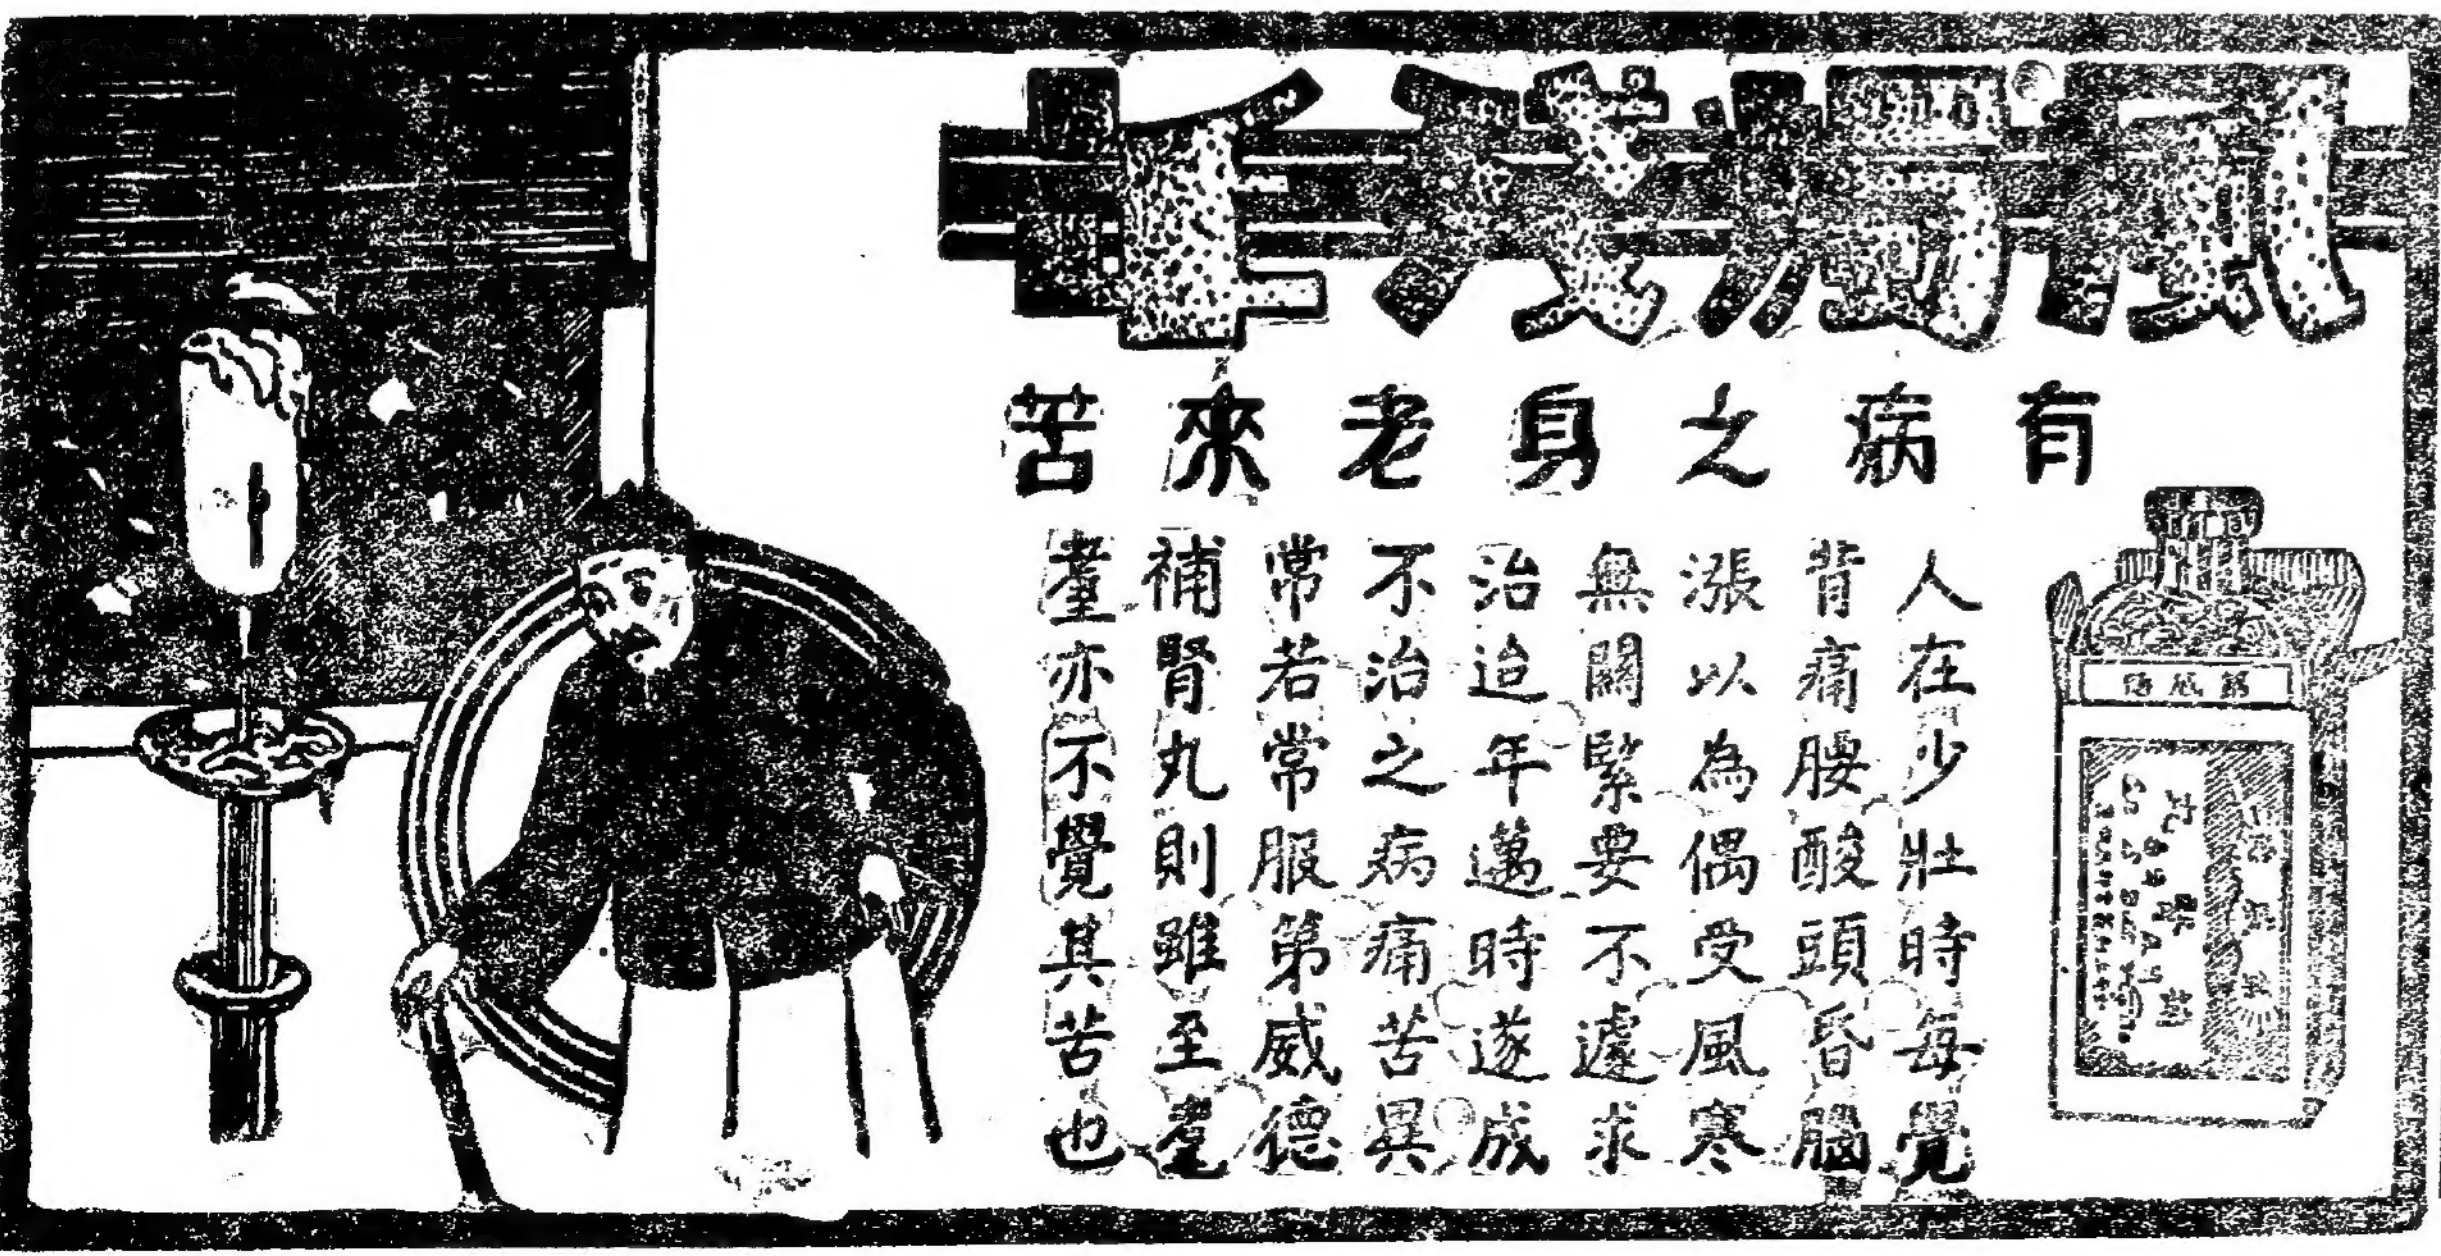 風燭殘年
有病之身老來苦
人在少壯時每覺
背痛腰酸頭昏腦
漲以為偶受風寒
無關緊要不遽求
治迨年邁時遂成
不治之病痛苦異
常若常服第威德
補腎丸則雖至耄
耋亦不覺其苦也